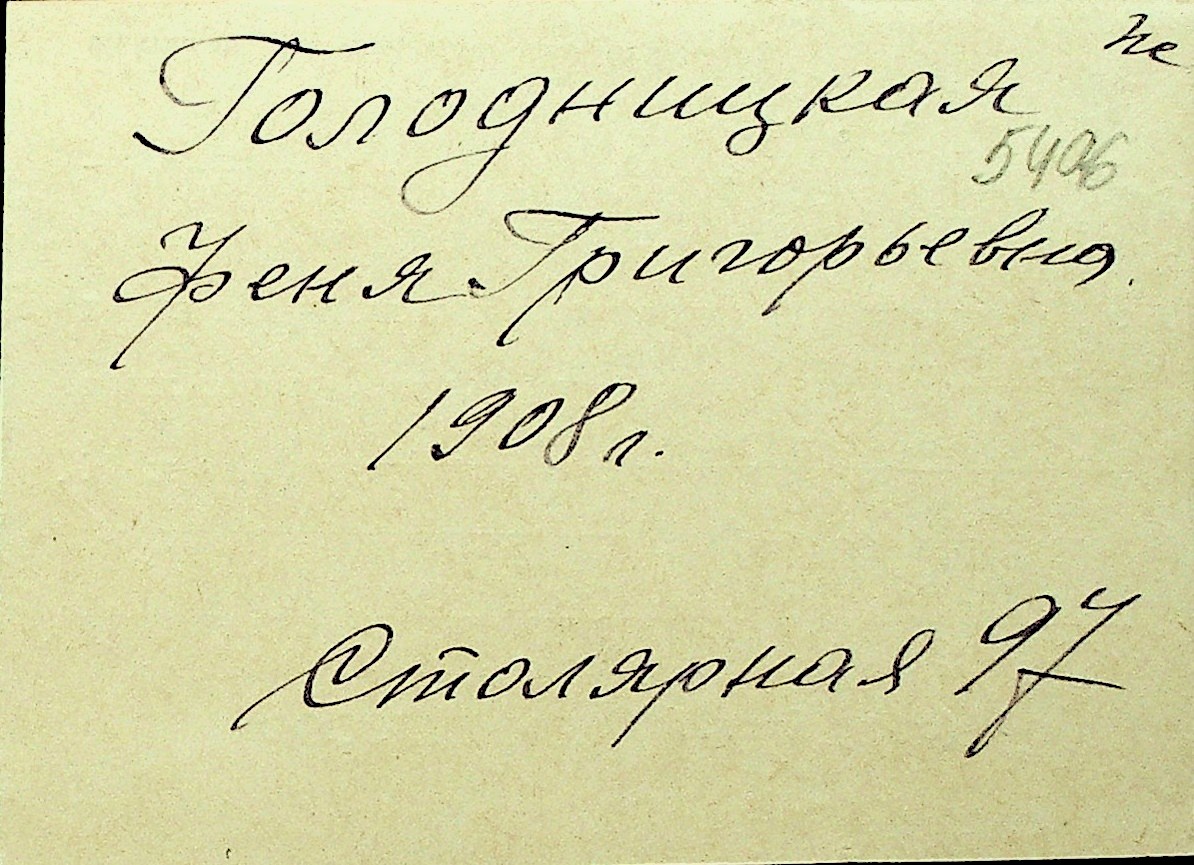 не
Голодницкая
5496
Феня Григорьевна.
1908 г.
Столярная 97